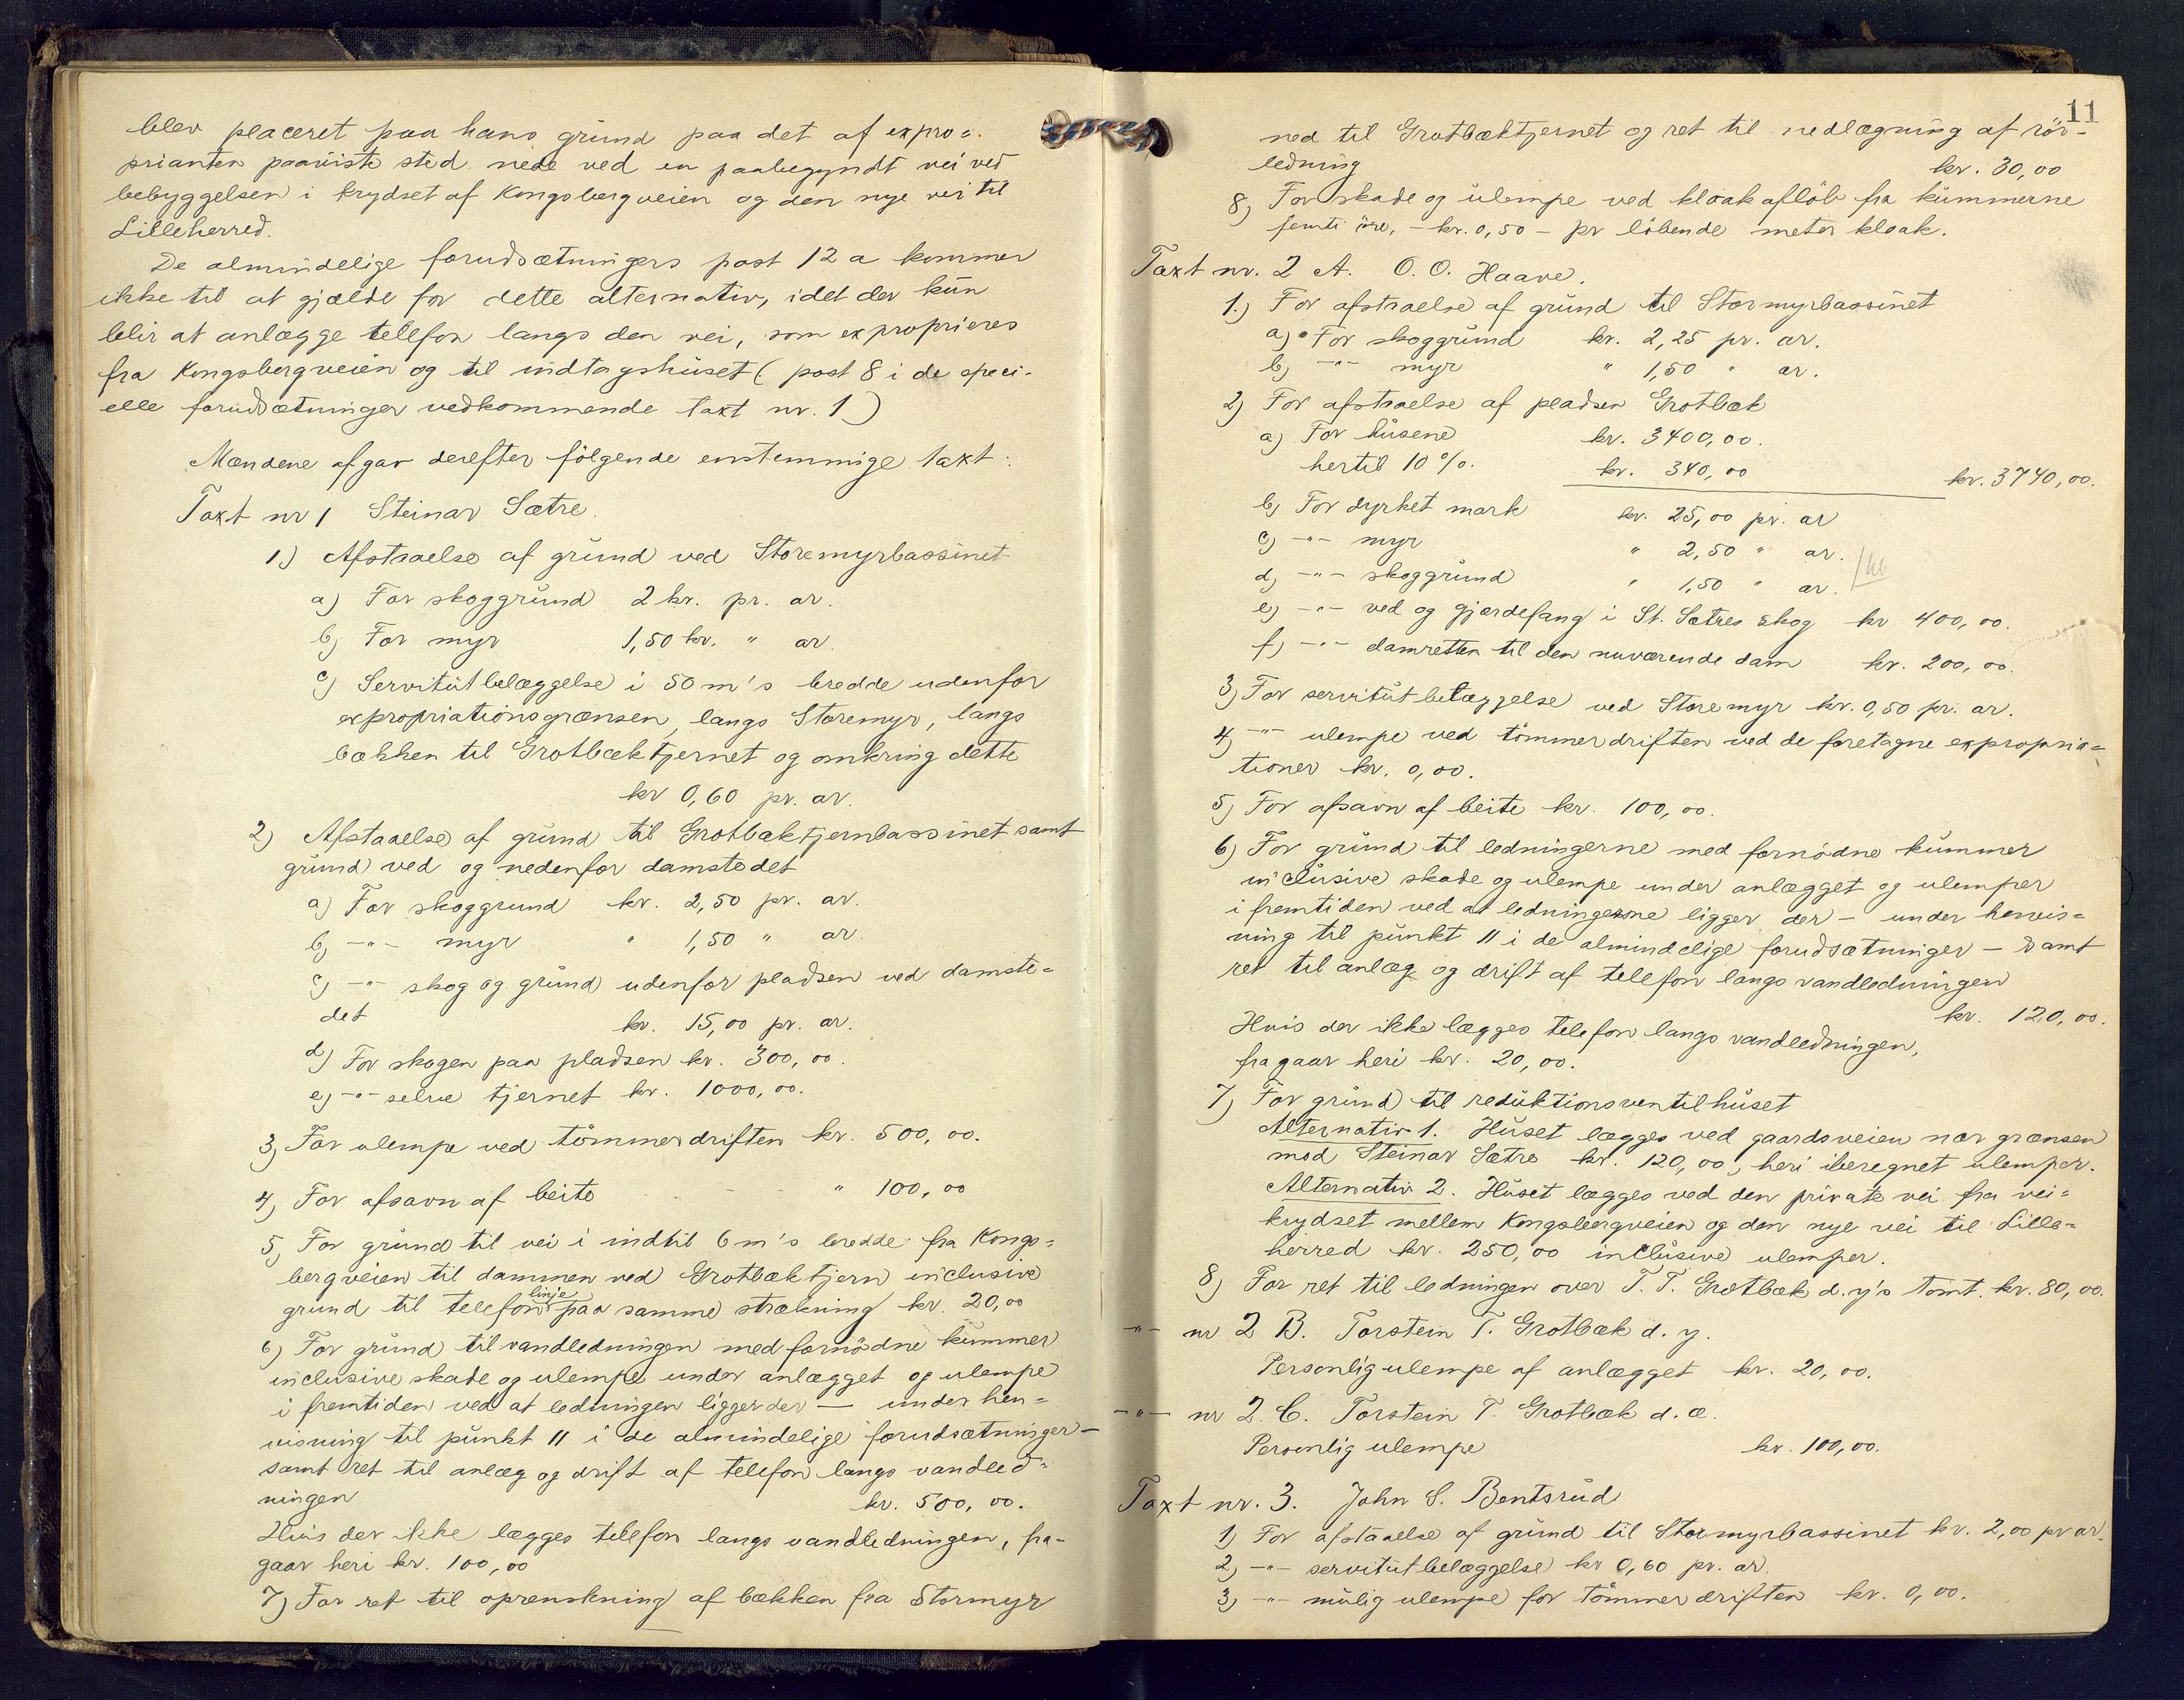 blev placeret paa hans grund paa det af expro-
prianten paaviste sted nede ved en paabegyndt vei ved
bebyggelsen i krydset af Kongsbergveien og den nye vei til
Lilleherred.
De almindelige forudsætningers post 12 a kommer
ikke til at gjælde for dette alternativ, idet der kun
blir at anlægge telefon langs den vei, som exproprieres
fra Kongsbergveien og til indtagshuset (post 8 i de speci-
elle forudsætninger vedkommende taxt nr. 1)
Mændene afgav derefter følgende enstemmige taxt:
Taxt nr 1 Steinar Sætre.
1.) Afstaaelse af grund ved Storemyrbassinet
a) For skoggrund 2 kr. pr. ar.
b) For myr 1,50 kr. " ar.
c) Servitutbelæggelse i 50 m's bredde udenfor
expropriationsgrænsen, langs Storemyr, langs
bækken til Grotbæktjernet og omkring dette
kr 0,60 pr. ar.
2) Afstaaelse af grund til Grotbæktjernbassinet samt
grund ved og nedenfor damstedet
a) For skoggrund kr. 2,50 pr. ar.
b) -"- myr " 1,50 " ar.
c) -"- skog og grund udenfor pladsen ved damste-
det kr. 15,00 pr. ar.
d) For skogen paa pladsen kr. 300,00.
e) -"- selve tjernet kr. 1000,00.
3) For ulempe ved tömmerdriften kr. 500,00.
4) For afsavn af beite " 100,00
5) For grund til vei i indtil 6 m's bredde fra Kongs-
bergveien til dammen ved Grotbæktjern inclusive
grund til telefonlinje paa samme strækning kr. 20,00
6) For grund til vandledningen med fornödne kummer
inclusive skade og ulempe under anlægget og ulempe
i fremtiden ved at ledningen ligger der — under hen-
visning til punkt 11 i de almindelige forudsætninger —
samt ret til anlæg og drift af telefon langs vandled-
ningen kr. 500,00.
Hvis der ikke lægges telefon langs vandledningen, fra-
gaar heri kr. 100,00
7) For ret til oprenskning af bækken fra Stormyr
11
ned til Grotbæktjernet og ret til nedlægning af rör-
ledning kr. 30,00
8) For skade og ulempe ved kloakaflöb fra kummerne
femti öre, - kr. 0,50 - pr löbende meter kloak.
Taxt nr. 2 A. O. O. Haave.
1.) For afstaaelse af grund til Stormyrbassinet
a) For skoggrund kr. 2,25 pr. ar.
b) -"- myr " 1,50 " ar.
2) For afstaaelse af pladsen Grotbæk
a) For husene kr. 3400,00.
hertil 10 %. kr. 340,00 kr. 3740,00.
b) For dyrket mark kr. 25,00 pr. ar
c) -"- myr " 2,50 " ar.
d) -"- skoggrund " 1,50 " ar.
e) -"- ved og gjærdefang i St. Sætres skog kr 400,00.
f) -"- damretten til den nuværende dam kr. 200,00.
3) For servitutbelæggelse ved Storemyr kr. 0,50 pr. ar.
4) -"- ulempe ved tömmerdriften ved de foretagne expropria-
tioner kr. 0,00.
5) For afsavn af beite kr. 100,00.
6) For grund til ledningerne med fornödne kummer
inclusive skade og ulempe under anlægget og ulemper
i fremtiden ved at ledningerne ligger der - under henvis-
ning til punkt 11 i de almindelige forudsætninger - samt
ret til anlæg og drift af telefon langs vandledningen
kr. 120,00.
Hvis der ikke lægges telefon langs vandledningen,
fragaar heri kr. 20,00.
7) For grund til reduktionsventilhuset
Alternativ 1. Huset lægges ved gaardsveien nær grænsen
mod Steinar Sætre kr. 120,00, heri iberegnet ulemper.
Alternativ 2. Huset lægges ved den private vei fra vei-
krydset mellem Kongsbergveien og den nye vei til Lille-
herred kr. 250,00 inclusive ulemper.
8) For ret til ledningen over T. T. Grotbæk d. y's tomt. kr. 80,00.
-"- nr 2 B. Torstein T. Grotbæk d. y.
Personlig ulempe af anlægget kr. 20,00.
-"- nr 2. C. Torstein T. Grotbæk d. æ.
Personlig ulempe kr. 100,00.
Taxt nr. 3. John S. Bentsrud
1) For afstaaelse af grund til Stormyrbassinet kr. 2,00 pr ar.
2) -"- servitutbelæggelse kr 0,60 pr. ar.
3) -"- mulig ulempe for tömmerdriften kr. 0,00.